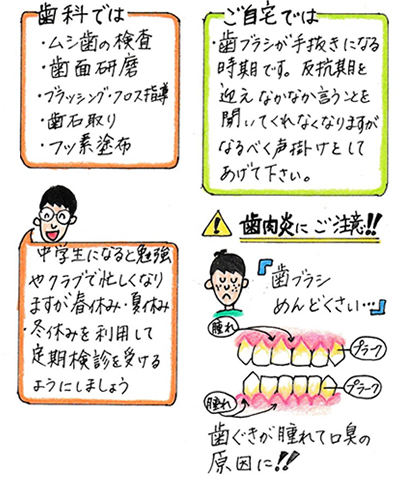 歯科では
・ムシ歯の検査
・歯面研磨
・ブラッシング・フロス指導
・歯石取り
・フッ素塗布
ご自宅では
・歯ブラシが手抜きになる
時期です。反抗期を
迎えなかなか言うことを
聞いてくれなくなりますが
なるべく声掛けとして
あげて下さい。
中学生になると勉強
やクラブで忙しくなり
ますが春休み・夏休み
・冬休みを利用して
定期検診を受ける
ようにしましょう
歯肉炎にご注意!!
『歯ブラシ
めんどくさい…』
腫れ
プラーク
プラーク
腫れ
歯ぐきが腫れて口臭の
原因に!!